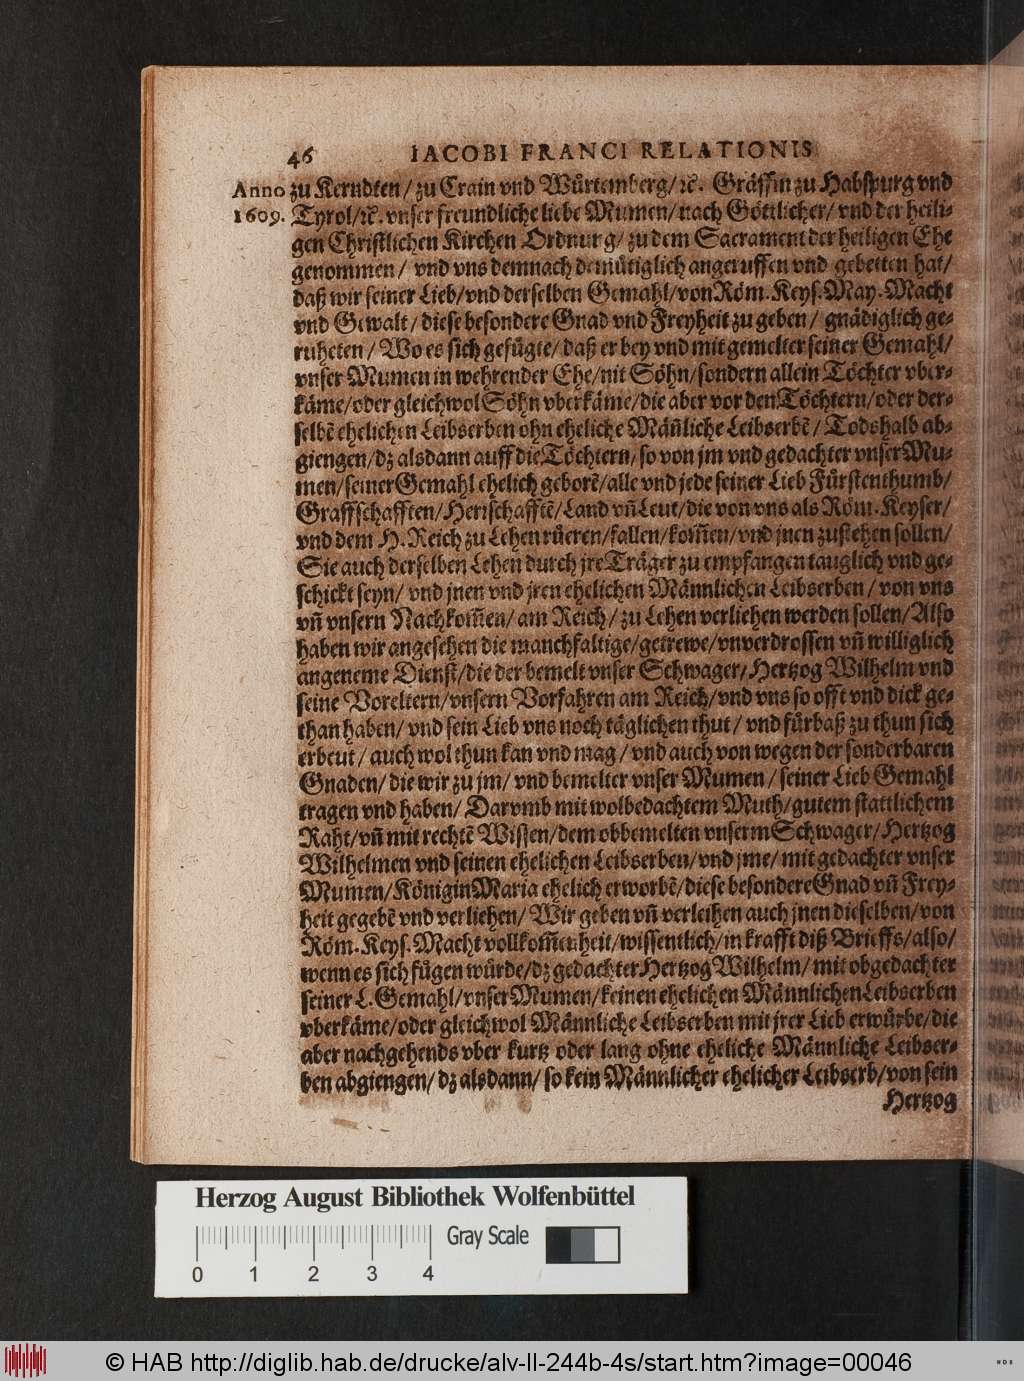 46 IACOBI FRANCI RELATIONIS
Anno zu Kerndten / zu Crain vnd Würtemberg / ꝛc. Gräffin zu Habspurg vnd
1609. Tyrol / ꝛc. vnser freundliche liebe Mumen / nach Göttlicher / vnd der heili-
gen Christlichen Kirchen Ordnung / zu dem Sacrament der heiligen Ehe
genommen / vnd vns demnach demütiglich angeruffen vnd gebetten hat /
daß wir seiner Lieb / vnd derselben Gemahl / von Röm. Keys. May. Macht
vnd Gewalt / diese besondere Gnad vnd Freyheit zu geben / gnädiglich ge-
ruheten / Wo es sich gefügte / daß er bey vnd mit gemelter seiner Gemahl /
vnser Mumen in wehrender Ehe / nit Söhn / sondern allein Töchter vber-
käme / oder gleichwol Söhn vberkäme / die aber vor den Töchtern / oder der-
selbē ehelichen Leibserben ohn eheliche Mäñliche Leibserbē / Todshalb ab-
giengen / dz alsdann auff die Töchtern / so von jm vnd gedachter vnser Mu-
men / seiner Gemahl ehelich geborē / alle vnd jede seiner Lieb Fürstenthumb /
Graffschafften / Herrschafftē / Land vñ Leut / die von vns als Röm. Keyser /
vnd dem H. Reich zu Lehen rüeren / fallen / kom̃en / vnd jnen zustehen sollen /
Sie auch derselben Lehen durch jre Träger zu empfangen tauglich vnd ge-
schickt seyn / vnd jnen vnd jren ehelichen Männlichen Leibserben / von vns
vñ vnsern Nachkom̃en / am Reich / zu Lehen verliehen werden sollen / Also
haben wir angesehen die manchfaltige / getrewe / vnverdrossen vñ williglich
angeneme Dienst / die der bemelt vnser Schwager / Hertzog Wilhelm vnd
seine Voreltern / vnsern Vorfahren am Reich / vnd vns so offt vnd dick ge-
than haben / vnd sein Lieb vns noch täglichen thut / vnd fürbaß zu thun sich
erbeut / auch wol thun kan vnd mag / vnd auch von wegen der sonderbaren
Gnaden / die wir zu jm / vnd bemelter vnser Mumen / seiner Lieb Gemahl
tragen vnd haben / Darvmb mit wolbedachtem Muth / gutem stattlichem
Raht / vñ mit rechtē Wissen / dem obbemelten vnserm Schwager / Hertzog
Wilhelmen vnd seinen ehelichen Leibserben / vnd jme / mit gedachter vnser
Mumen / Königin Maria ehelich erworbē / diese besondere Gnad vñ Frey-
heit gegebē vnd verliehen / Wir geben vñ verleihen auch jnen dieselben / von
Röm. Keys. Macht vollkom̃enheit / wissentlich / in krafft diß Brieffs / also /
wenn es sich fügen würde / dz gedachter Hertzog Wilhelm / mit obgedachter
seiner L. Gemahl / vnser Mumen / keinen ehelichen Männlichen Leibserben
vberkäme / oder gleichwol Männliche Leibserben mit jrer Lieb erwürbe / die
aber nachgehends vber kurtz oder lang ohne eheliche Männliche Leibser-
ben abgiengen / dz alsdann / so kein Männlicher ehelicher Leibserb / von sein
Hertzog
Herzog August Bibliothek Wolfenbüttel
Gray Scale
0 1 2 3 4
© HAB http://diglib.hab.de/drucke/alv-ll-244b-4s/start.htm?image=00046